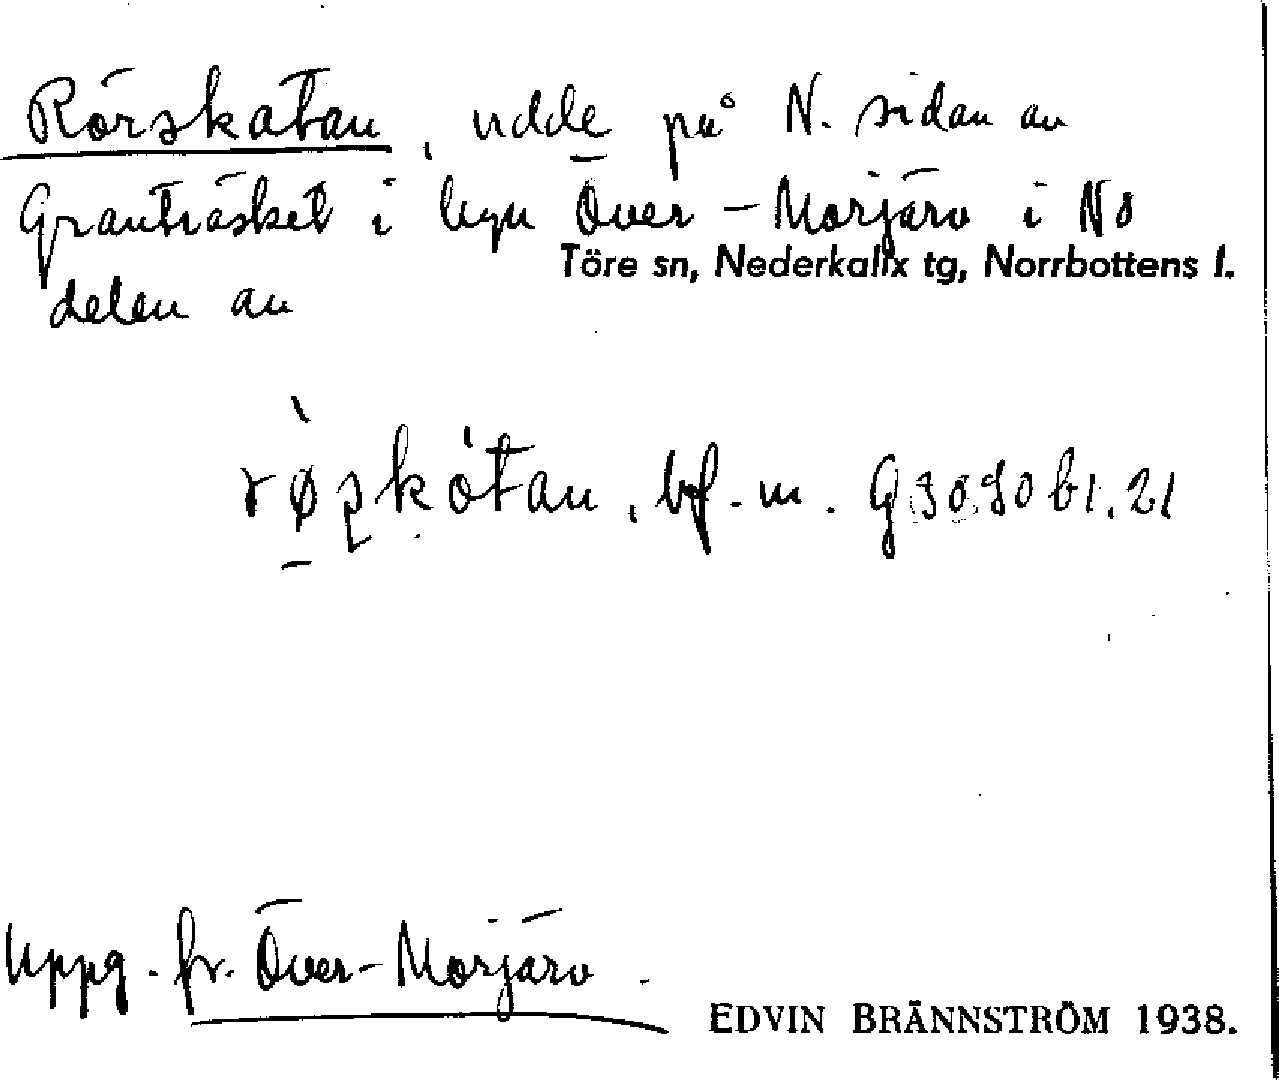 Rörskatan, udde på N. sidan av
Granträsket i byn Över-Morjärv i NÖ
Töre sn, Nederkalix tg, Norrbottens l.
delen av
bf. m. G 30 30 b1. 21
Uppg. fr. Över-Morjärv.
EDVIN BRÄNNSTRÖM 1938.